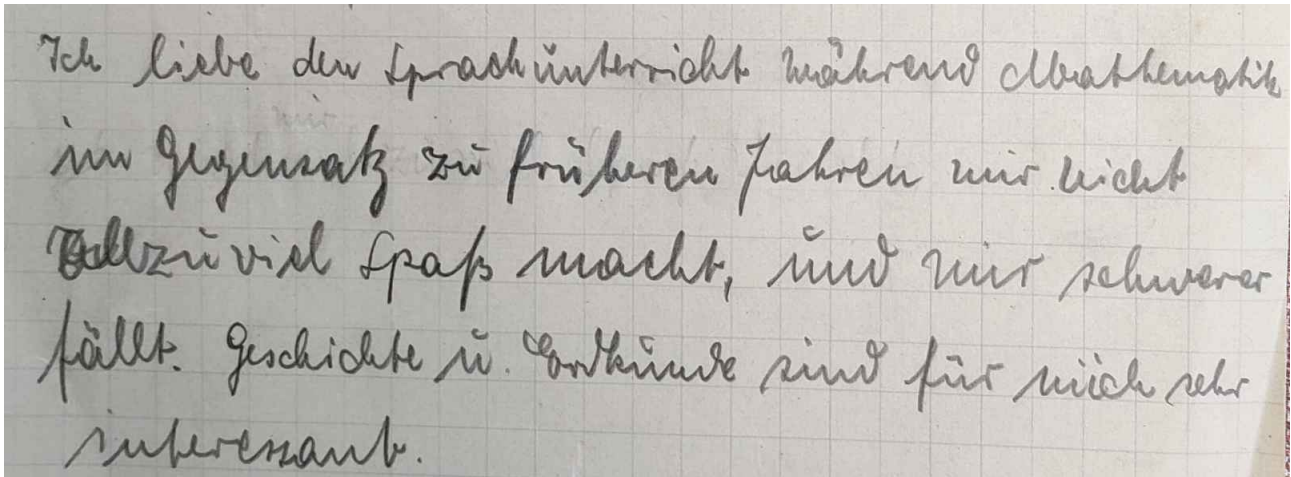 Ich liebe den Sprachunterricht während Mathematik
im Gegensatz zu früheren Jahren mir nicht
allzuviel Spaß macht, und mir schwerer
fällt. Geschichte u. Erdkunde sind für mich sehr
interessant.